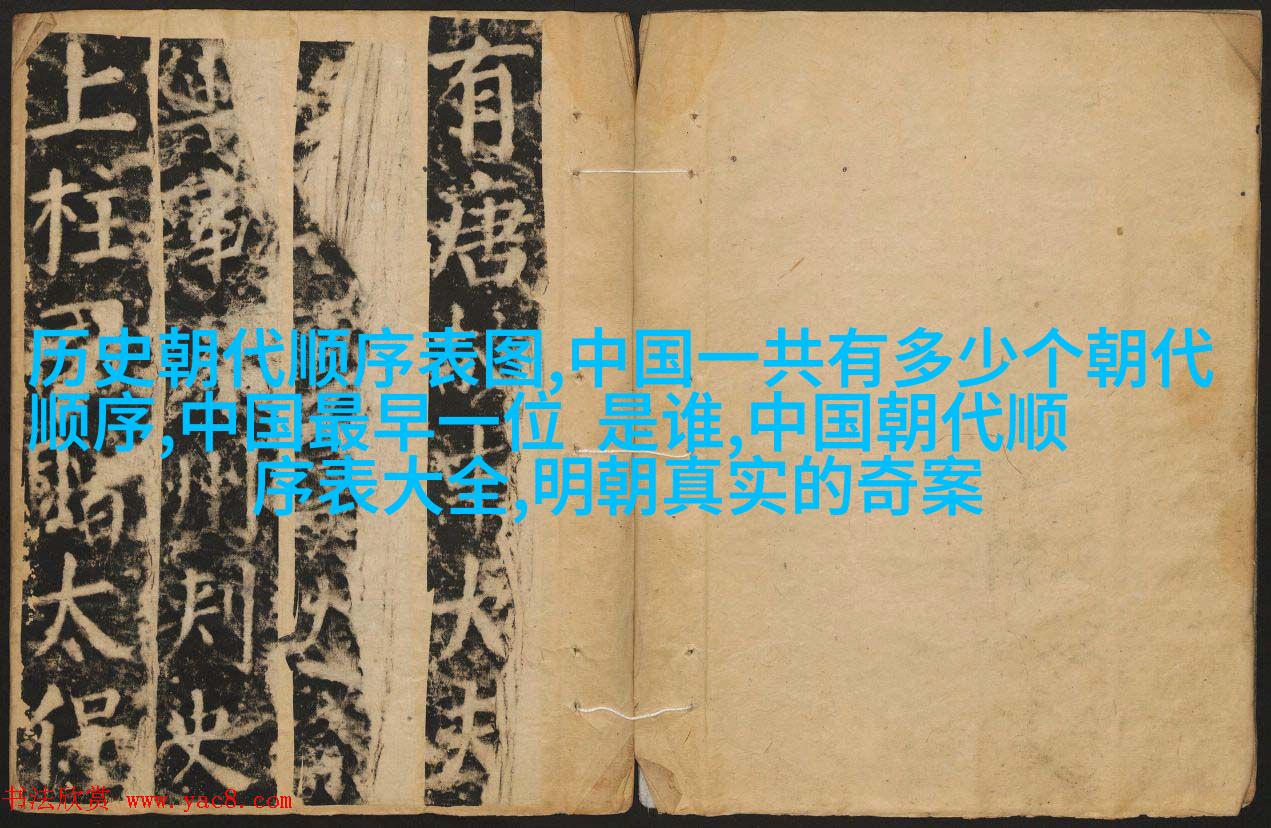 历史朝代顺序表图,中国一共有多少个朝代
顺序,中国最早一位 是谁,中国朝代顺
序表大全,明朝真实的奇案
有唐大夫
軍州刺史
上柱贈太保
书法欣赏 www.yac8.com